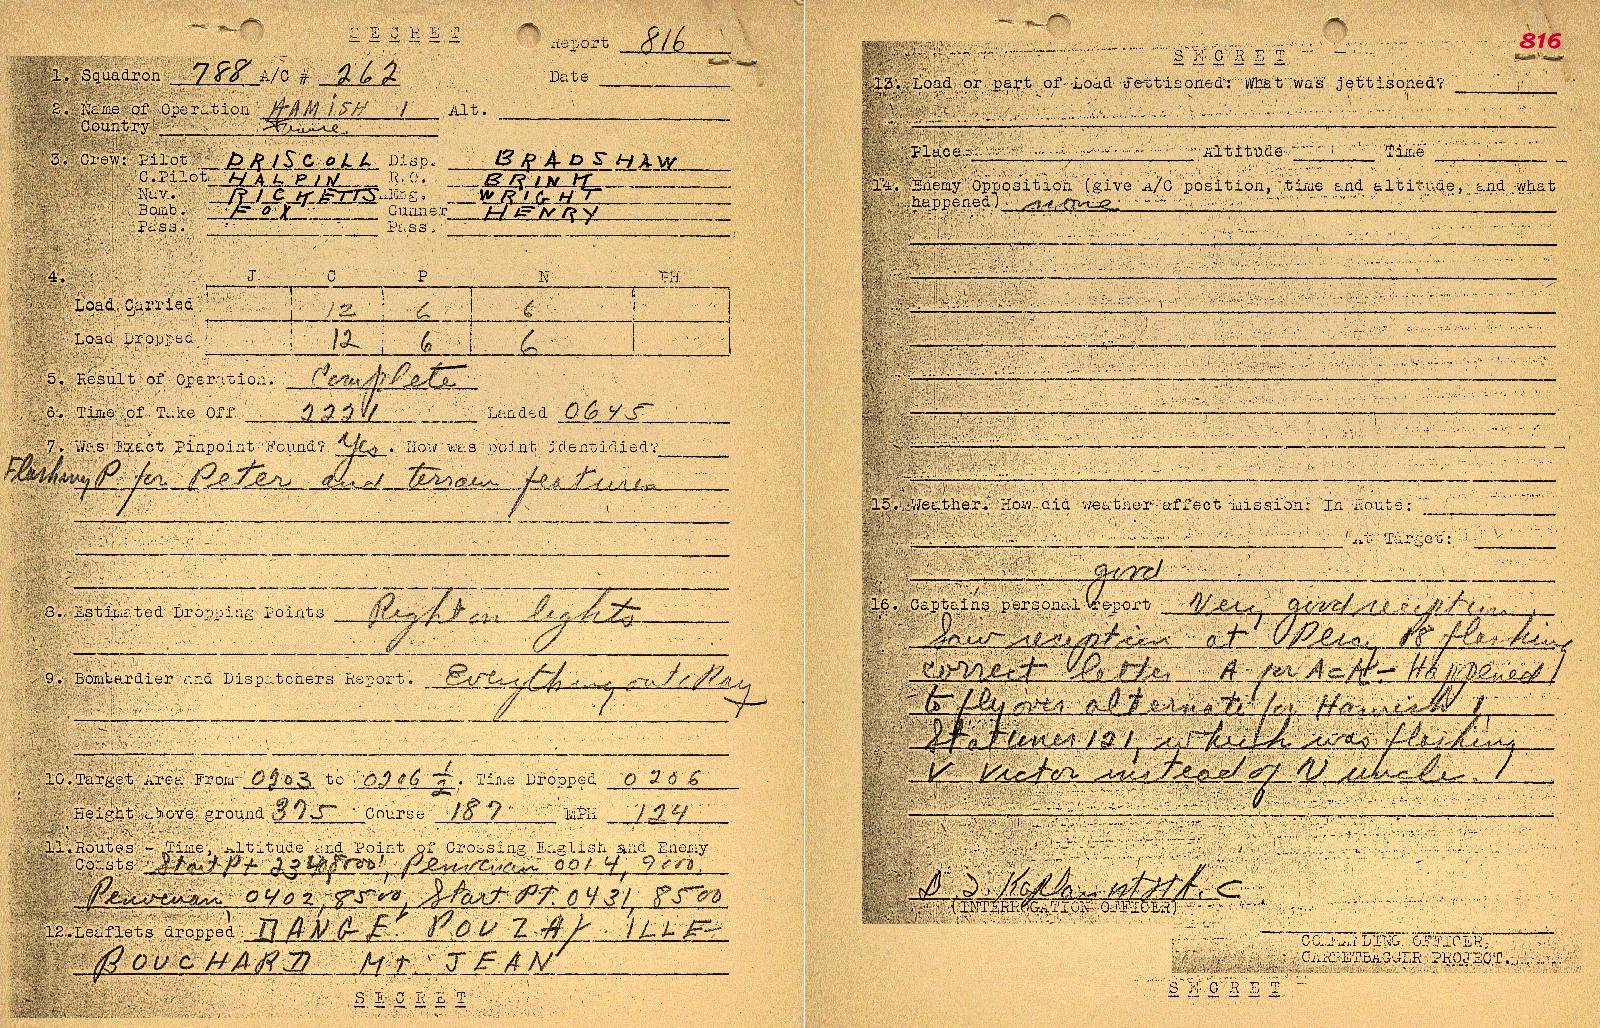 SECRET
Report 816
1. Squadron 788 A/C # 262 Date
2. Name of Operation HAMISH 1 Alt.
Country France
3. Crew: Pilot DRISCOLL Disp. BRADSHAW
C.Pilot HALPIN R.O. BRINK
Nav. RICKETTS Eng. WRIGHT
Bomb. FOX Gunner HENRY
Pass. Pass.
4. J C P N PH
Load Carried 12 6 6
Load Dropped 12 6 6
5. Result of Operation. Complete
6. Time of Take Off 2221 Landed 0645
7. Was Exact Pinpoint Found? Yes. How was point identidied?
Flashing P for Peter and terrain features
8. Estimated Dropping Points Right on lights
9. Bombardier and Dispatchers Report. Everything out okay
10. Target Area From 0203 to 0206 ½. Time Dropped 0206
Height above ground 375 Course 187 MPH 124
11. Routes - Time, Altitude and Point of Crossing English and Enemy
Coasts Start Pt 8000', 0014, 9000,
0402, 8500, Start PT. 0431, 8500
12. Leaflets dropped DANGE' POUZAY ILLE
BOUCHARD MT. JEAN
SECRET
816
SECRET
13. Load or part of Load Jettisoned: What was jettisoned?
Place Altitude Time
14. Enemy Opposition (give A/C position, time and altitude, and what
happened) none
15. Weather. How did weather affect mission: In Route:
At Target:
good
16. Captains personal report Very good reception.
Saw reception at Percy 18 flashing
correct letter A for A=A - Happened
to fly over alternate for Hamish 1,
121, which was flashing
V Victor instead of U uncle.
Kaplan
(INTERROGATION OFFICER)
COMMANDING OFFICER,
CARPETBAGGER PROJECT.
SECRET